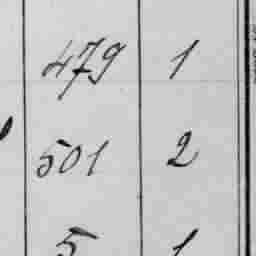 479 1
501 2
5 1